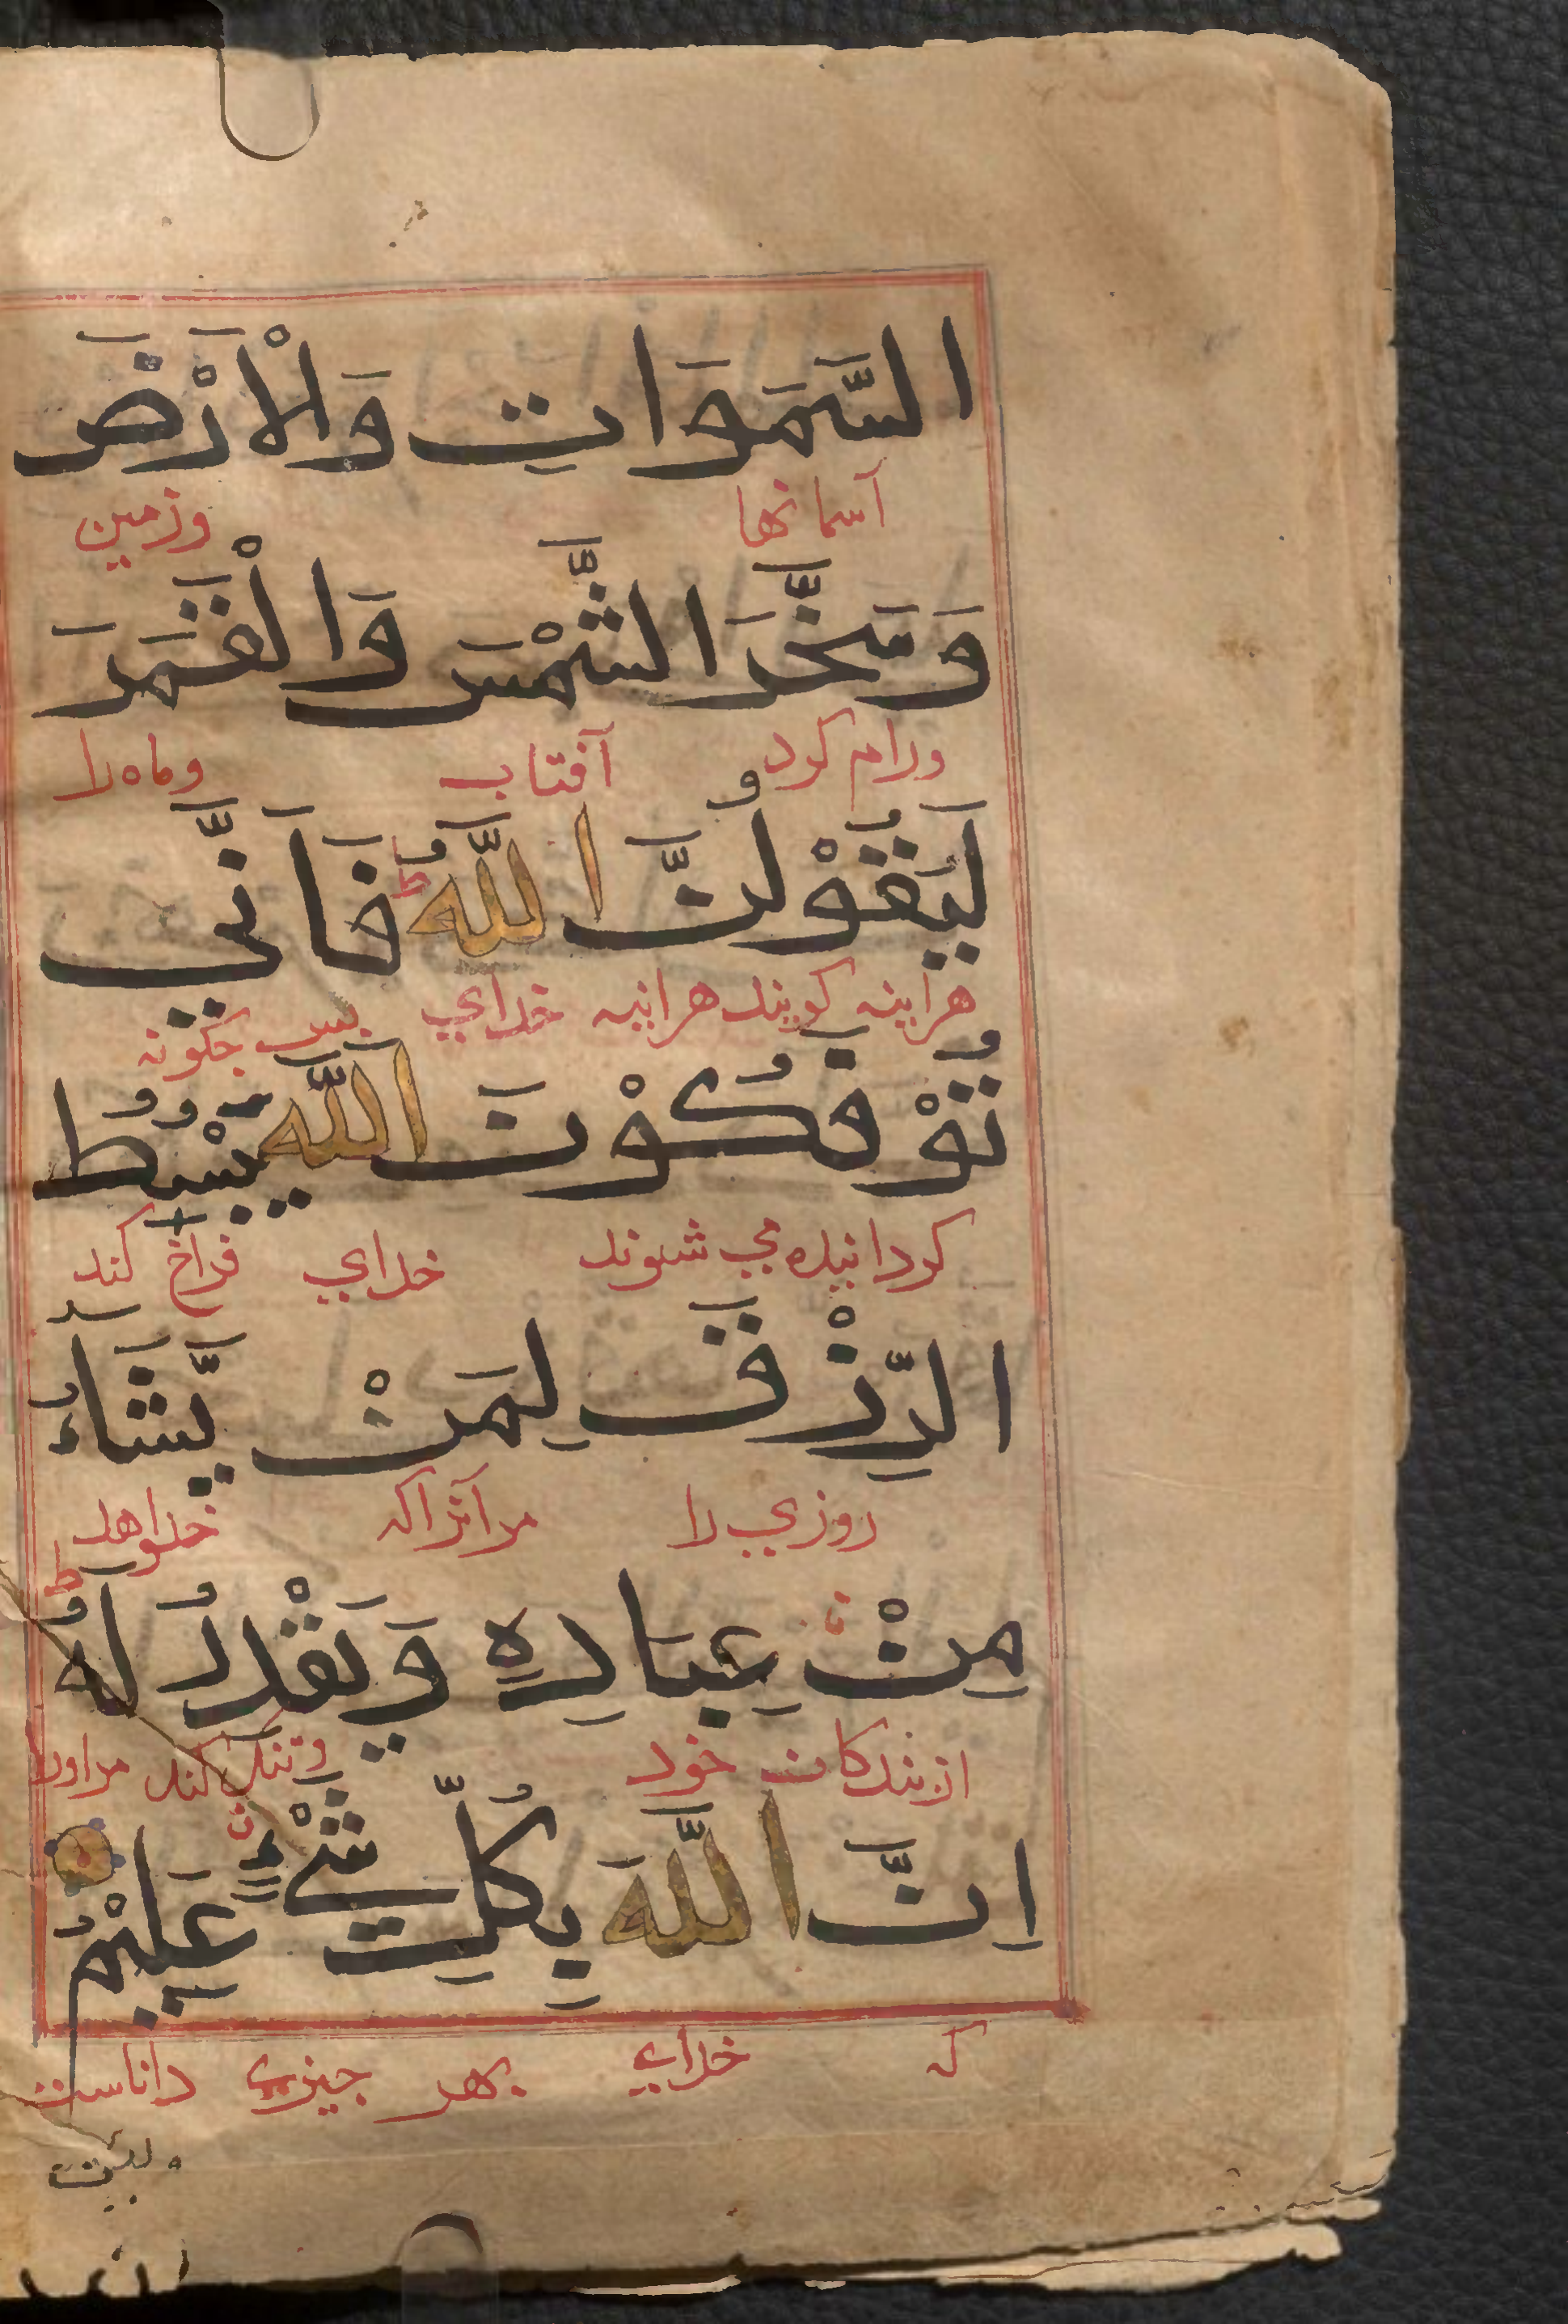 السَّمَوَاتِ وَالْاَرْضَ
آسمانها وزمین
وَسَخَّرَ الشَّمْسَ وَالْقَمَرَ
ورام کرد آفتاب وماه را
لَيَقُوْلُنَّ اللّٰهُ ط فَاَنّٰى
هراینه کویند هراینه خدای بس جکونه
تُؤْفَكُوْنَ اَللّٰهُ يَبْسُطُ
کردانیده می شوند خدای فراخ کند
الرِّزْقَ لِمَنْ يَّشَآءُ
روزي را مر آنرا که خواهد
مِنْ عِبَادِهٖ وَيَقْدِرُ لَهُ ط
از بندکان خود وتنک کند مراورا
اِنَّ اللّٰهَ بِكُلِّ شَيْءٍ عَلِيْمٌ
که خدای بهر جیزی داناست
ولئن